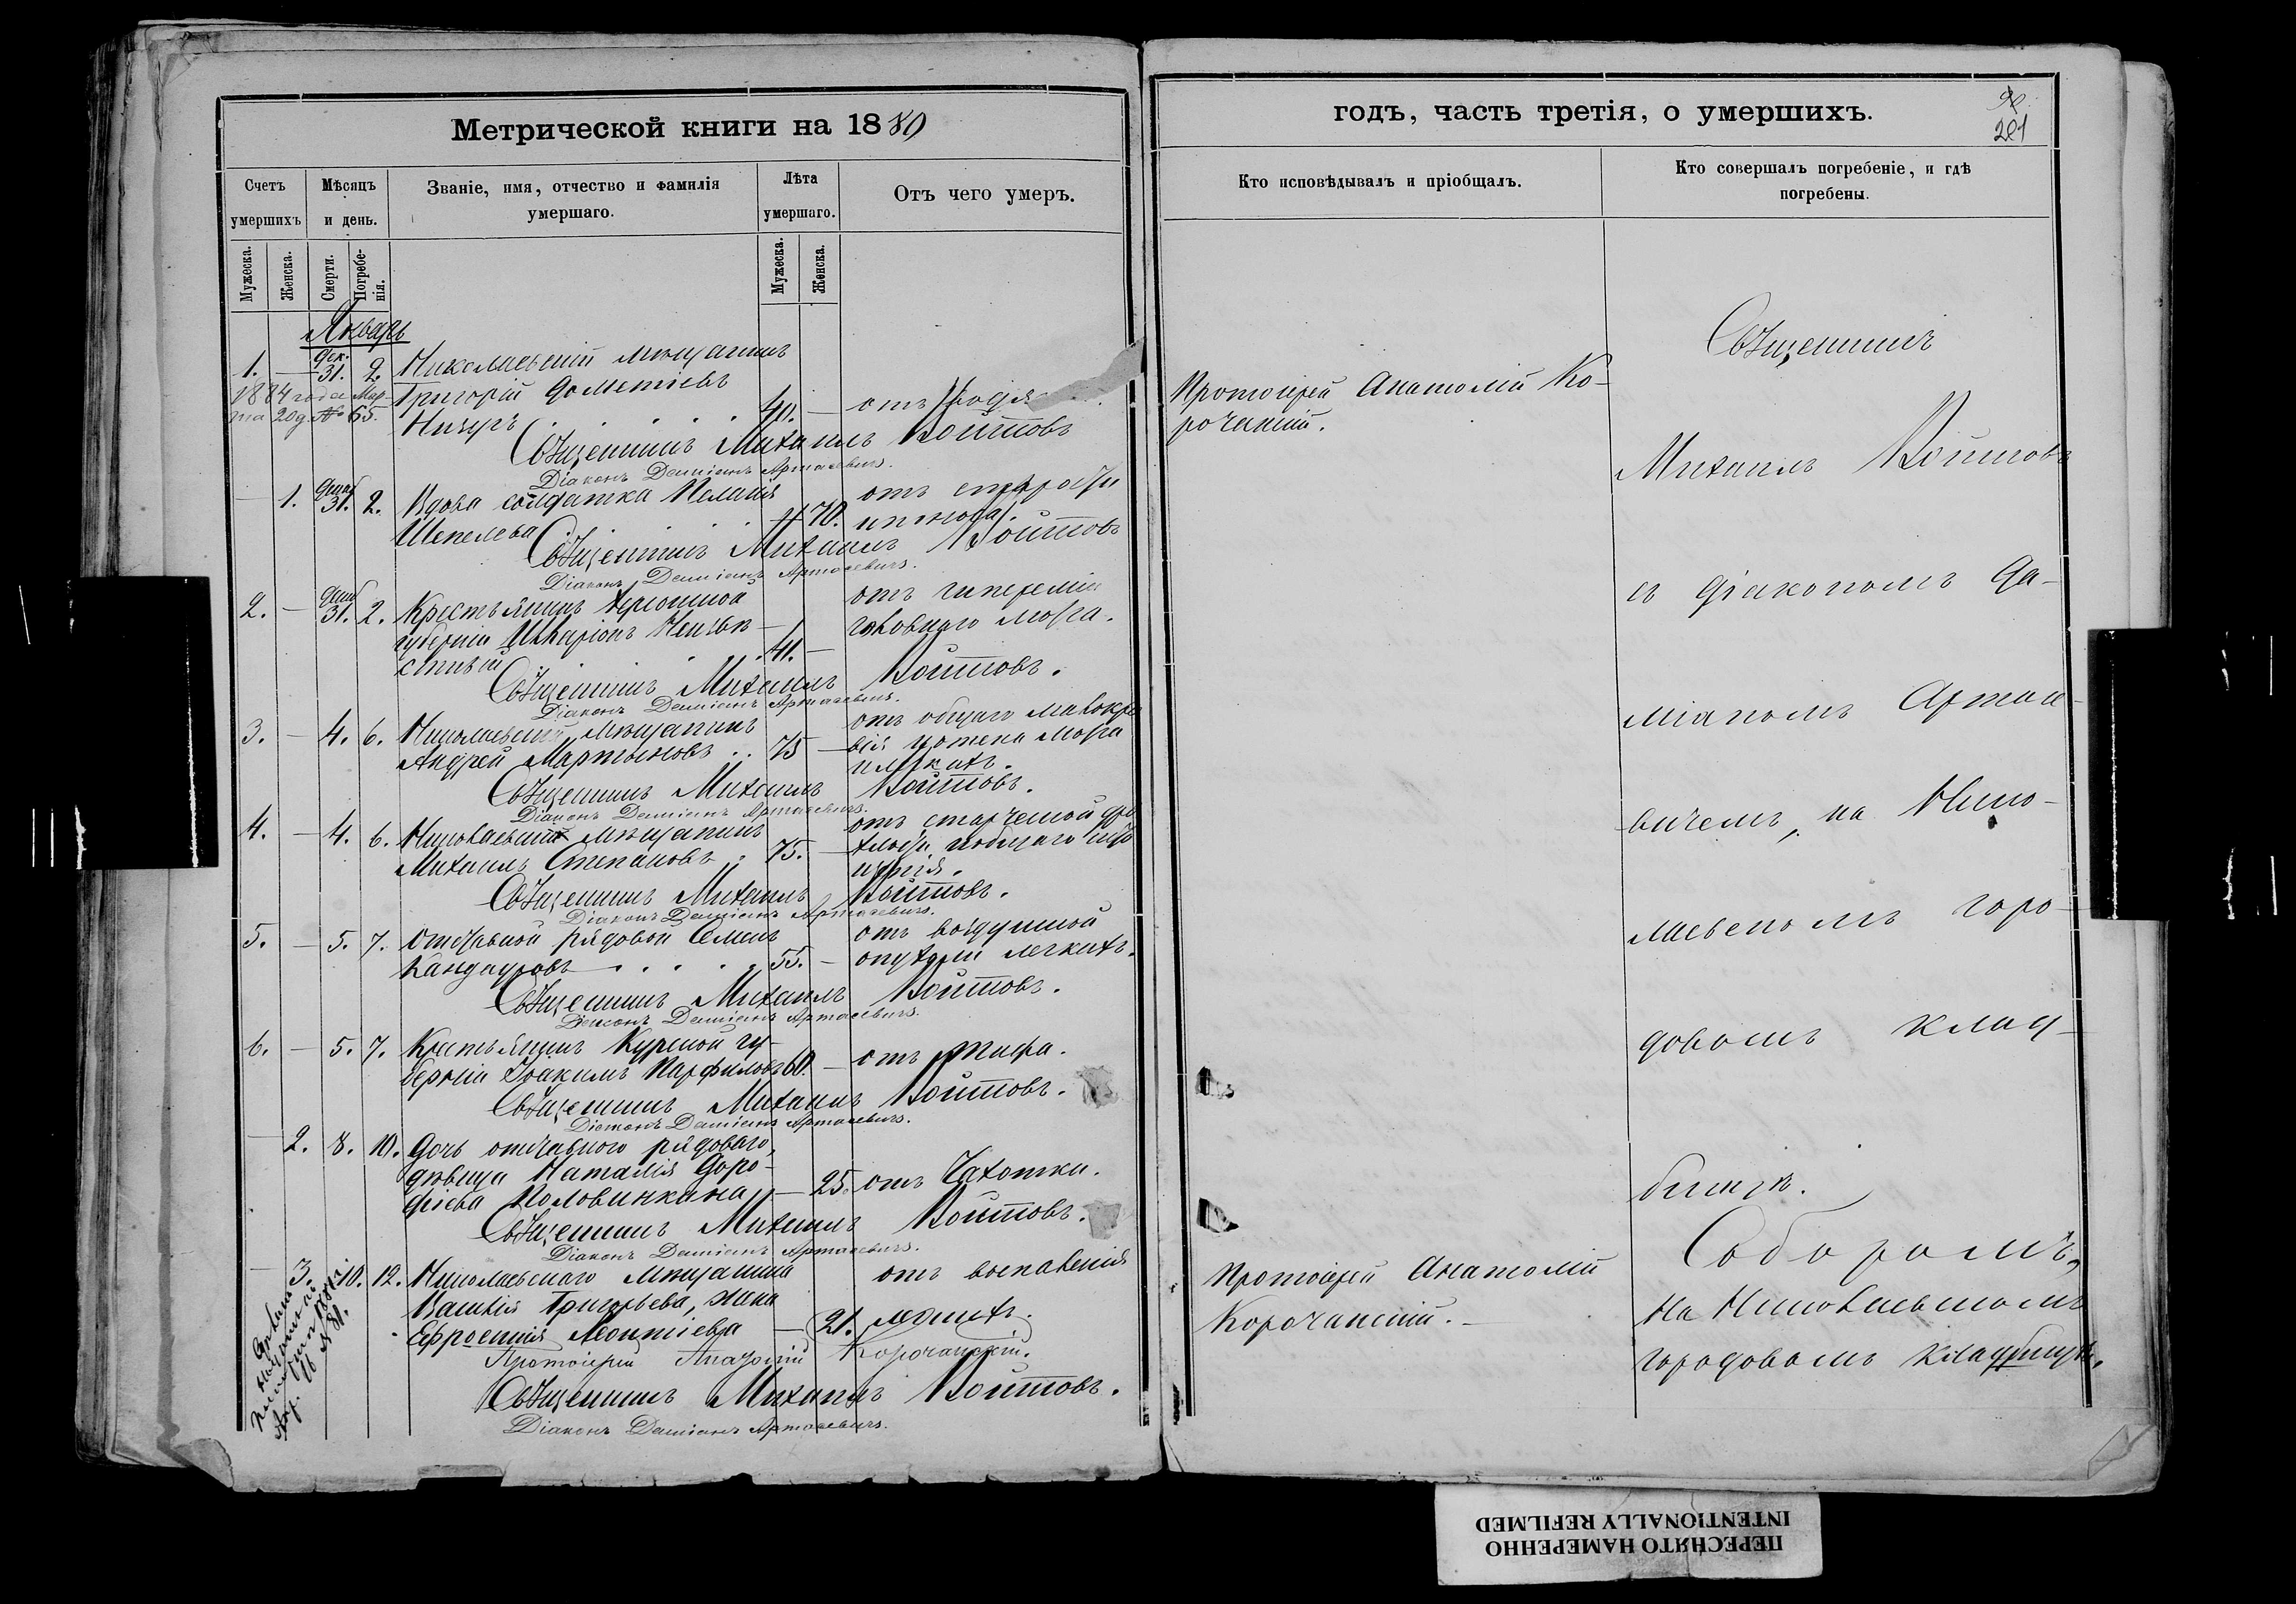 Метрической книги на 1880
Счетъ умершихъ
Мѣсяцъ и день.
Званіе, имя, отчество и фамилія умершаго.
Лѣта умершаго.
Отъ чего умеръ.
Мужеска.
Женска.
Смерти.
Погребенія.
Мужеска.
Женска.
Январь
1. — Дек. 31. 2. Николаевскій мѣщанинъ
Григорій Дометіевъ
40. — отъ
1884 года Мар-
та 20д. № 65.
Священникъ Михаилъ Войтовъ
Діаконъ Даміанъ Артасевичъ.
— 1. 31. 2. Вдова солдатка Пелагія
Шепелева 70. отъ старости
Священникъ Михаилъ Войтовъ
Діаконъ Даміанъ Артасевичъ.
2. — 31. 2. Крестьянинъ Херсонской
губерніи Илларіонъ
41. — отъ гипереміи
головнаго мозга.
Священникъ Михаилъ Войтовъ.
Діаконъ Даміанъ Артасевичъ.
3. — 4. 6. Николаевскій мѣщанинъ
Андрей Мартыновъ . . 75 — отъ общаго малокро
вія и отека мозга
и легкихъ.
Священникъ Михаилъ Войтовъ.
Діаконъ Даміанъ Артасевичъ.
4. — 4. 6. Николаевскій мѣщанинъ
Михаилъ Степановъ . 75. — отъ старческой дря
хлости и общаго
Священникъ Михаилъ Войтовъ.
Діаконъ Даміанъ Артасевичъ.
5. — 5. 7. Отставной рядовой Семенъ
Кандауровъ . . . . . 55. — отъ воздушной
опухоли легкихъ.
Священникъ Михаилъ Войтовъ.
Діаконъ Даміанъ Артасевичъ.
6. — 5. 7. Крестьянинъ Курской гу-
берніи Іоакимъ Парфиловъ 60. — отъ тифа.
Священникъ Михаилъ Войтовъ.
Діаконъ Даміанъ Артасевичъ.
— 2. 8. 10. Дочь отставного рядоваго,
дѣвица Наталія Доро-
фіева Половинкина — 25. отъ Чахотки.
Священникъ Михаилъ Войтовъ.
Діаконъ Даміанъ Артасевичъ.
— 3. 10. 12. Николаевскаго мѣщанина
Василія Григорьева, жена
Ефросинія Леонтіева — 21. отъ воспаленія
легкихъ.
Протоіерей Анатолій Корочанскій.
Священникъ Михаилъ Войтовъ.
Діаконъ Даміанъ Артасевичъ.
годъ, часть третія, о умершихъ.
201
Кто исповѣдывалъ и пріобщалъ.
Кто совершалъ погребеніе, и гдѣ погребены.
Протоіерей Анатолій Ко-
рочанскій.
Священникъ
Михаилъ Войтовъ
съ діакономъ Да-
міаномъ Артасе-
вичемъ, на Нико-
лаевскомъ горо-
довомъ клад-
бищѣ.
Протоіерей Анатолій
Корочанскій.
Соборомъ,
на Николаевскомъ
городовомъ кладбищѣ.
ПЕРЕСНЯТО НАМЕРЕННО
INTENTIONALLY REFILMED